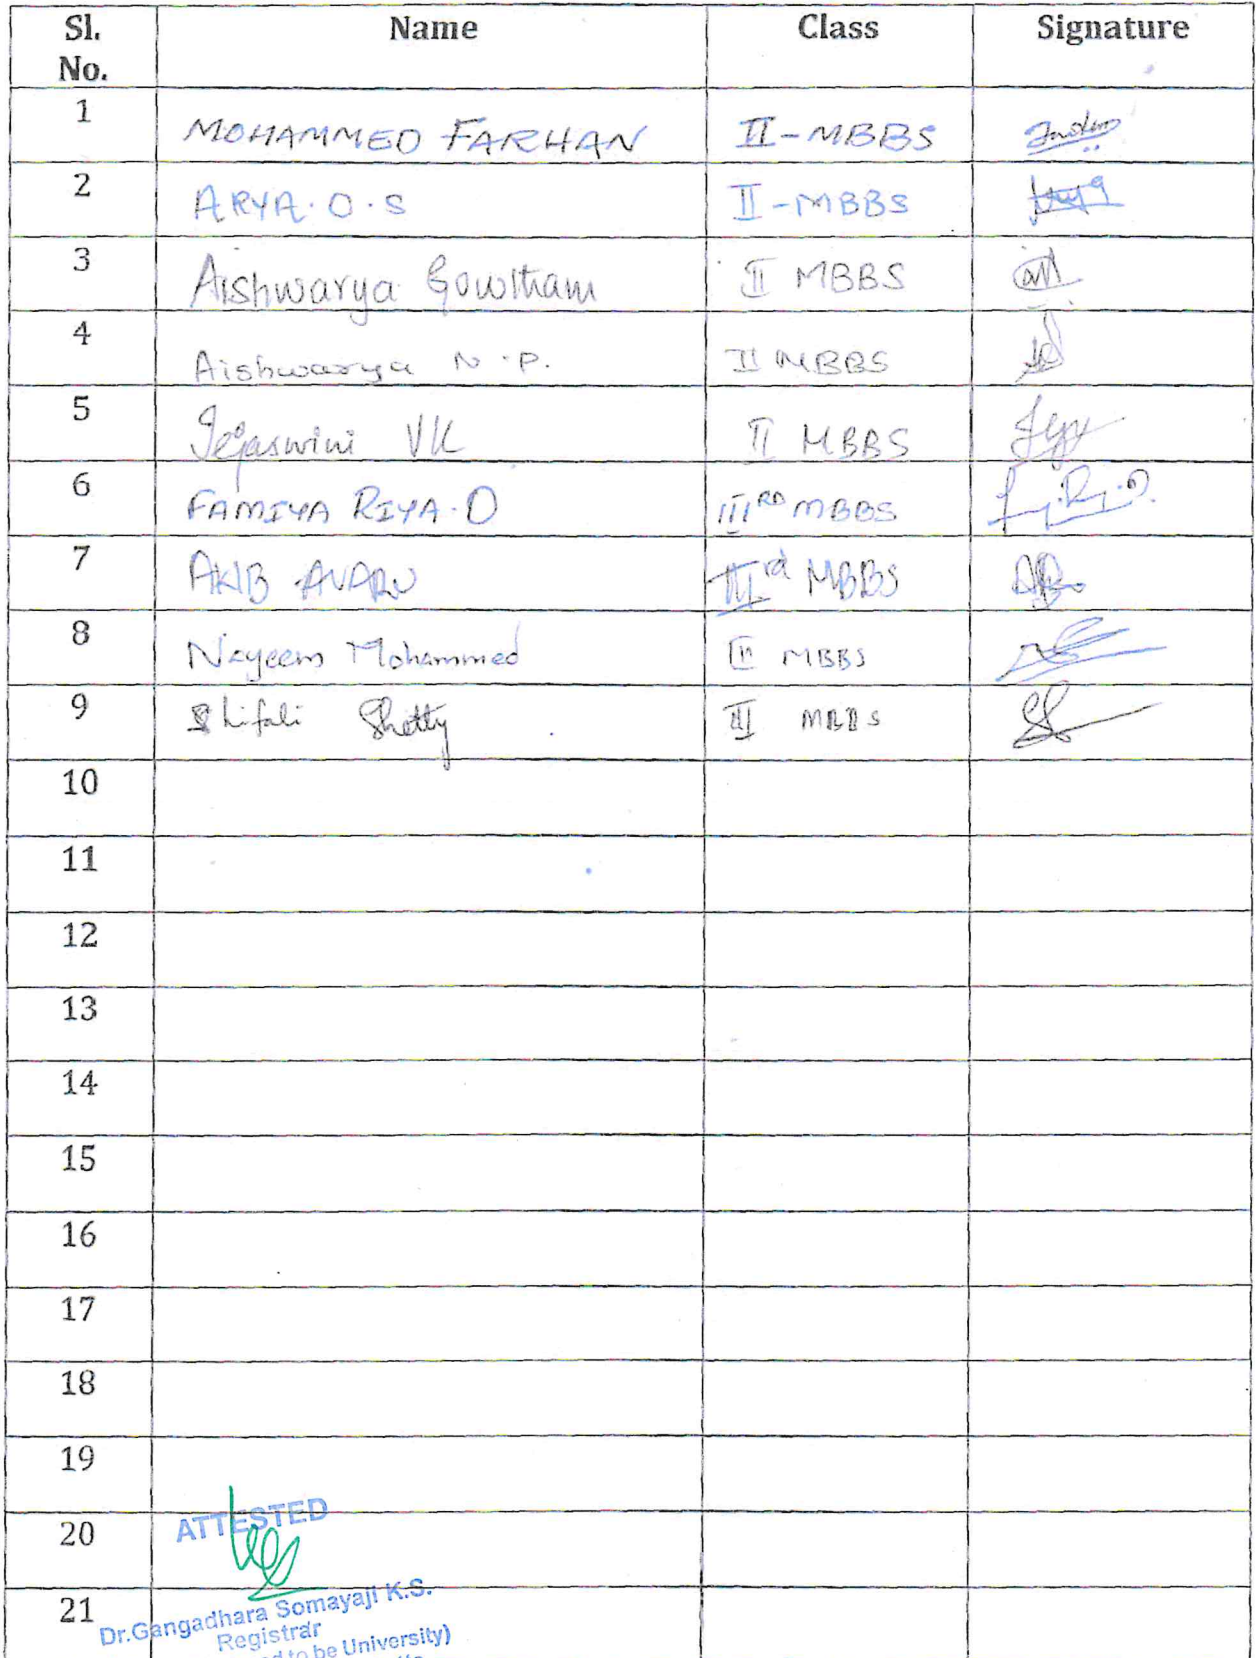 Sl. No. Name Class Signature
1 MOHAMMED FARHAN II-MBBS
2 ARYA.O.S II-MBBS
3 Aishwarya Gowtham II MBBS
4 Aishwarya N.P. II MBBS
5 Tejaswini VK II MBBS
6 FAMIYA RIYA.D IIIRD MBBS
7 AKIB AVARU IIIrd MBBS
8 Nayeem Mohammed MBBS
9 Shifali Shetty III MBBS
10
11
12
13
14
15
16
17
18
19
20 ATTESTED
21 Dr.Gangadhara Somayaji K.S.
Registrar
to be University)